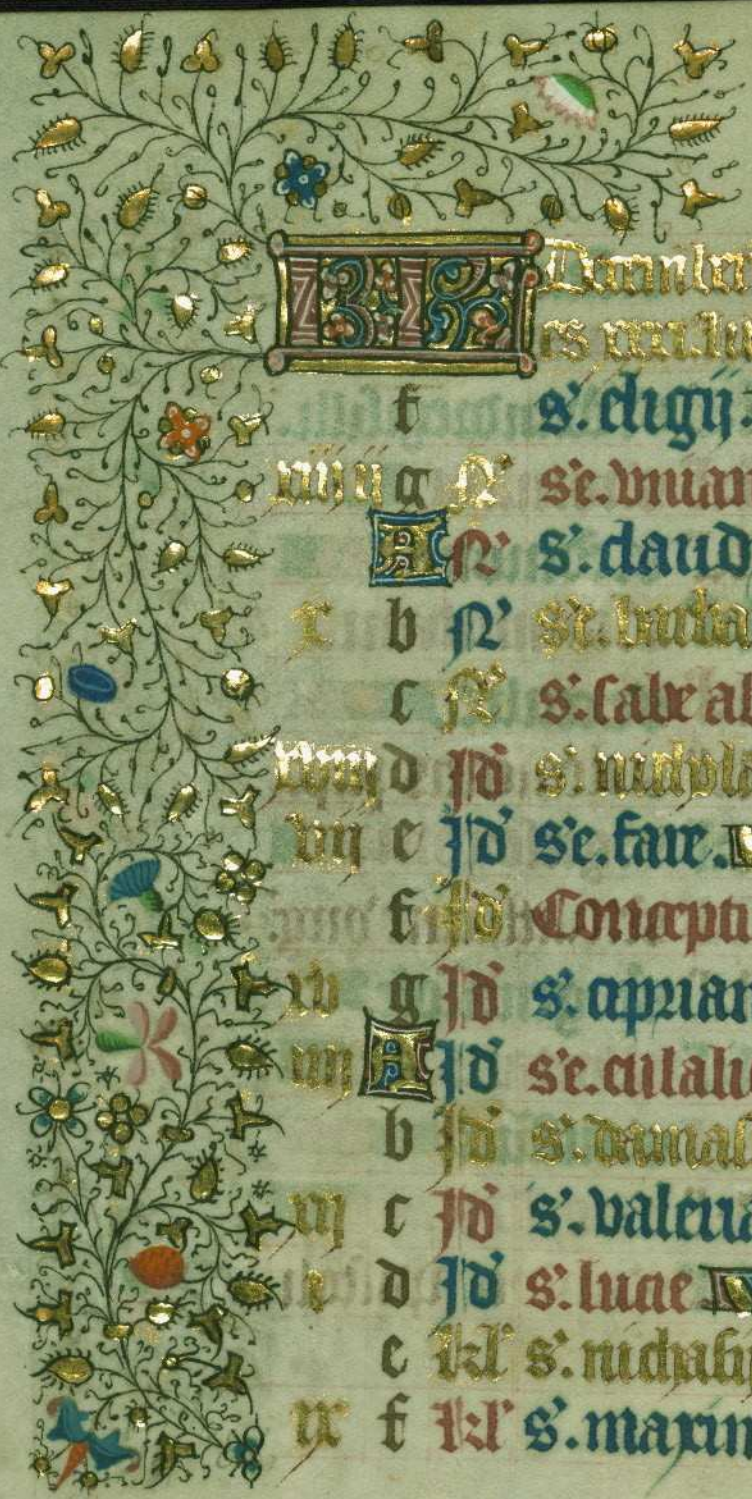 KL Decembre
es xxxi. lu
f s'. eligij.
xiij ij g N' s'e. viuian
A N' s'. claud
x b N' s'e. barba
c N' s'. sabe ab
xviij d Id' s'. nicola
vij e Id' s'e. fare.
f Id' Concepti
xv g Id' s'. ciprian
iiij A Id' s'e. eulalie
b Id' s'. damas
xij c Id' s'. valeria
i d Id' s'. lucie
e kl' s'. nichasij
ix f kl' s'. maxim